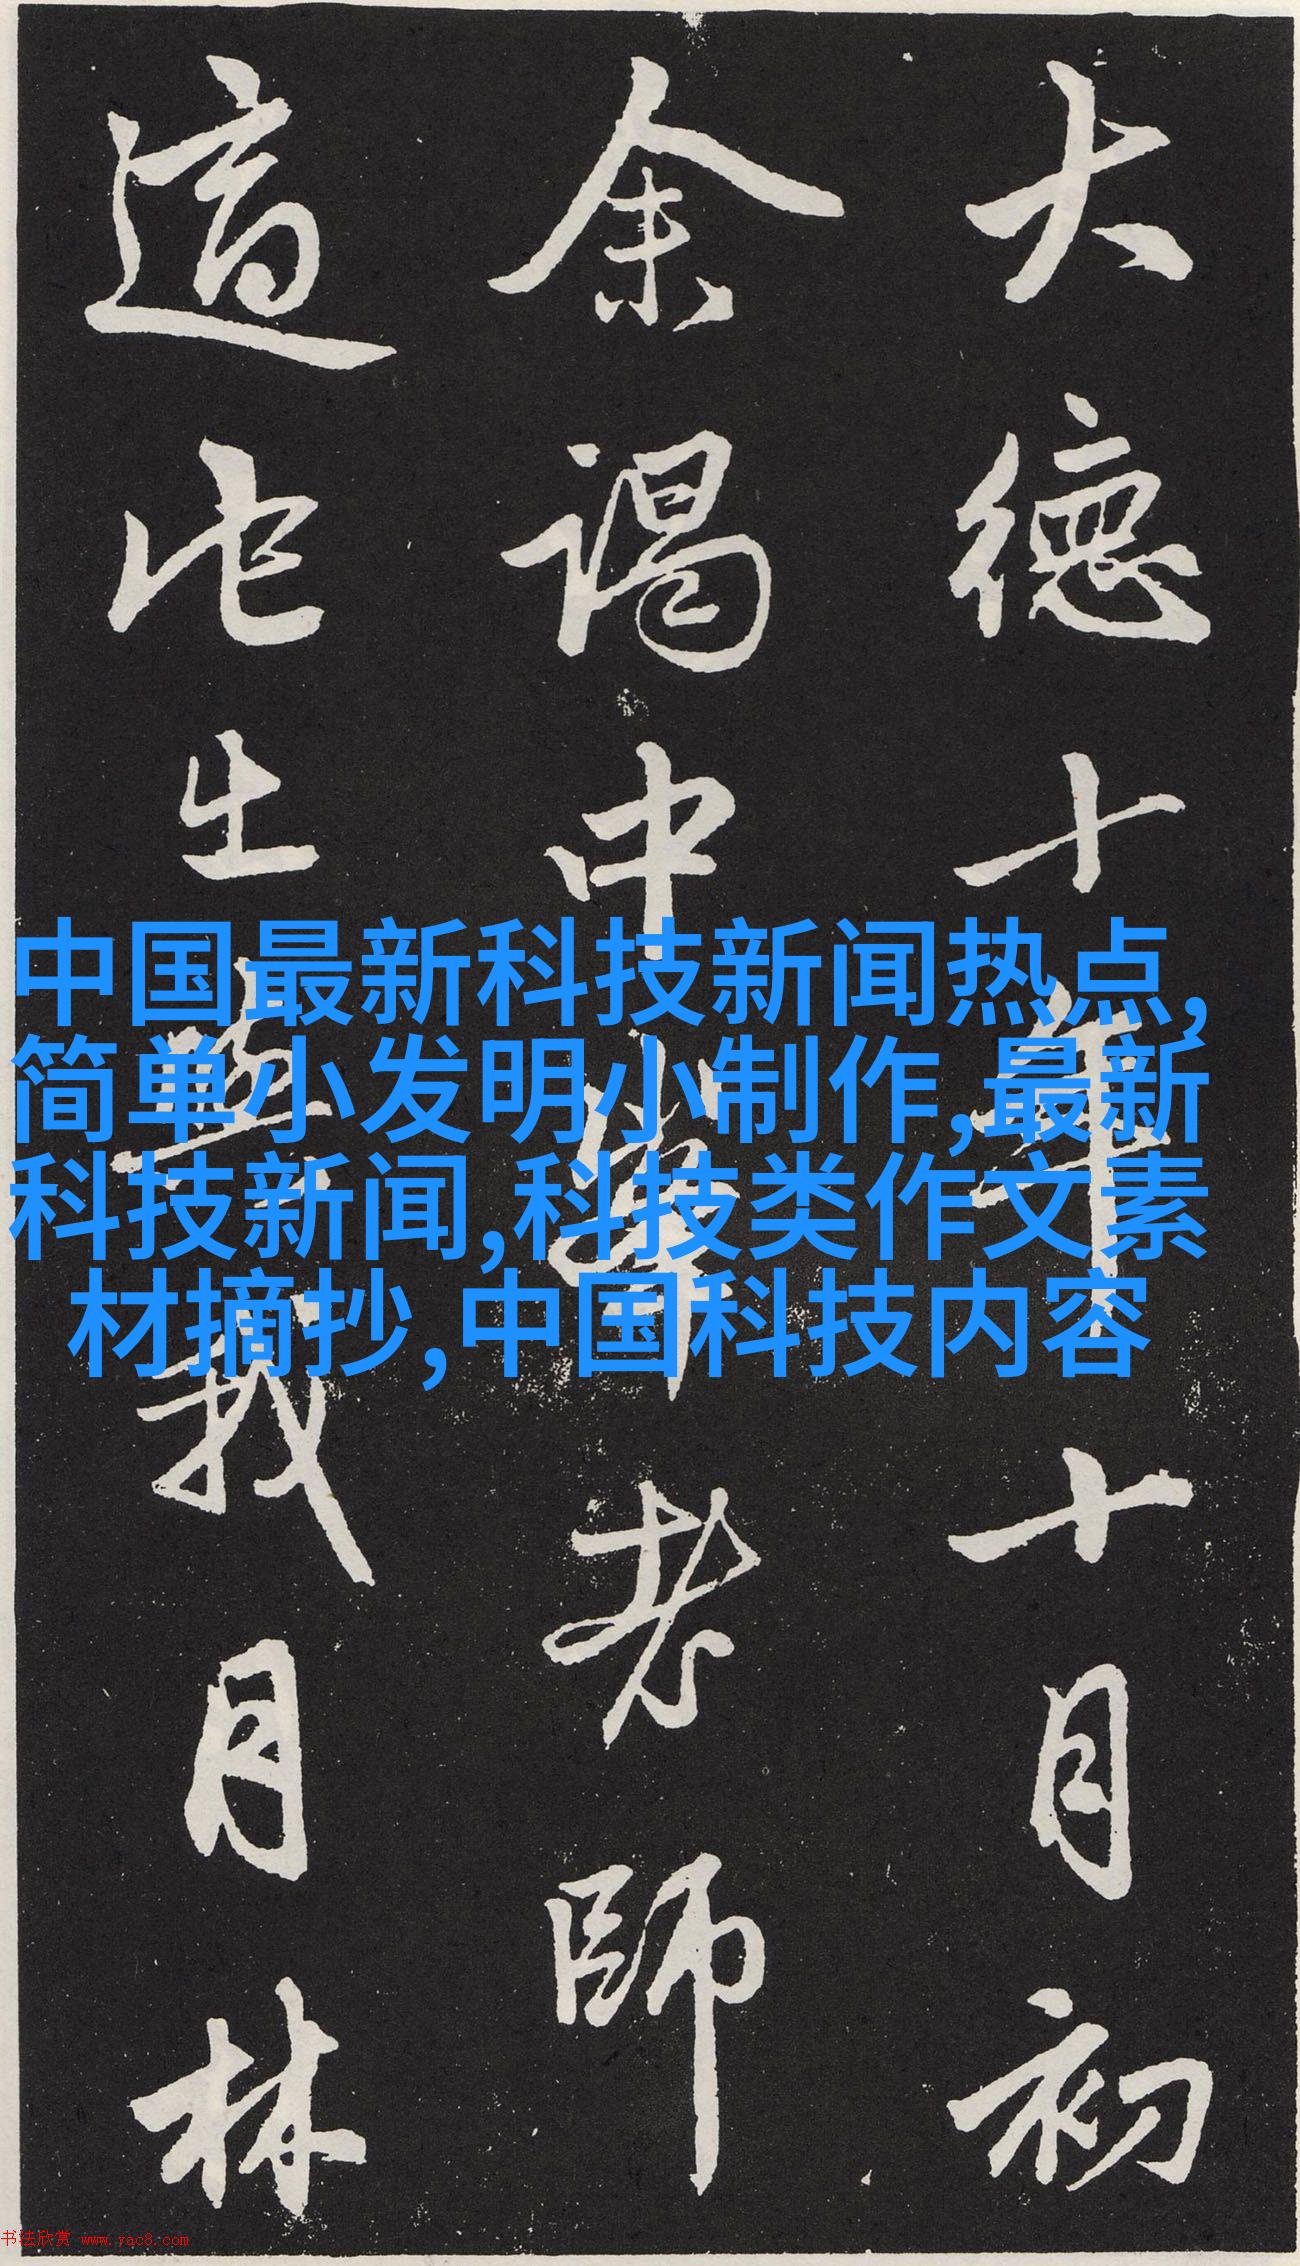 大德十年十月初
余谒中峯老師
適此出與我月林
中国最新科技新闻热点,
简单小发明小制作,最新
科技新闻,科技类作文素
材摘抄,中国科技内容
书法欣赏 www.yac8.com